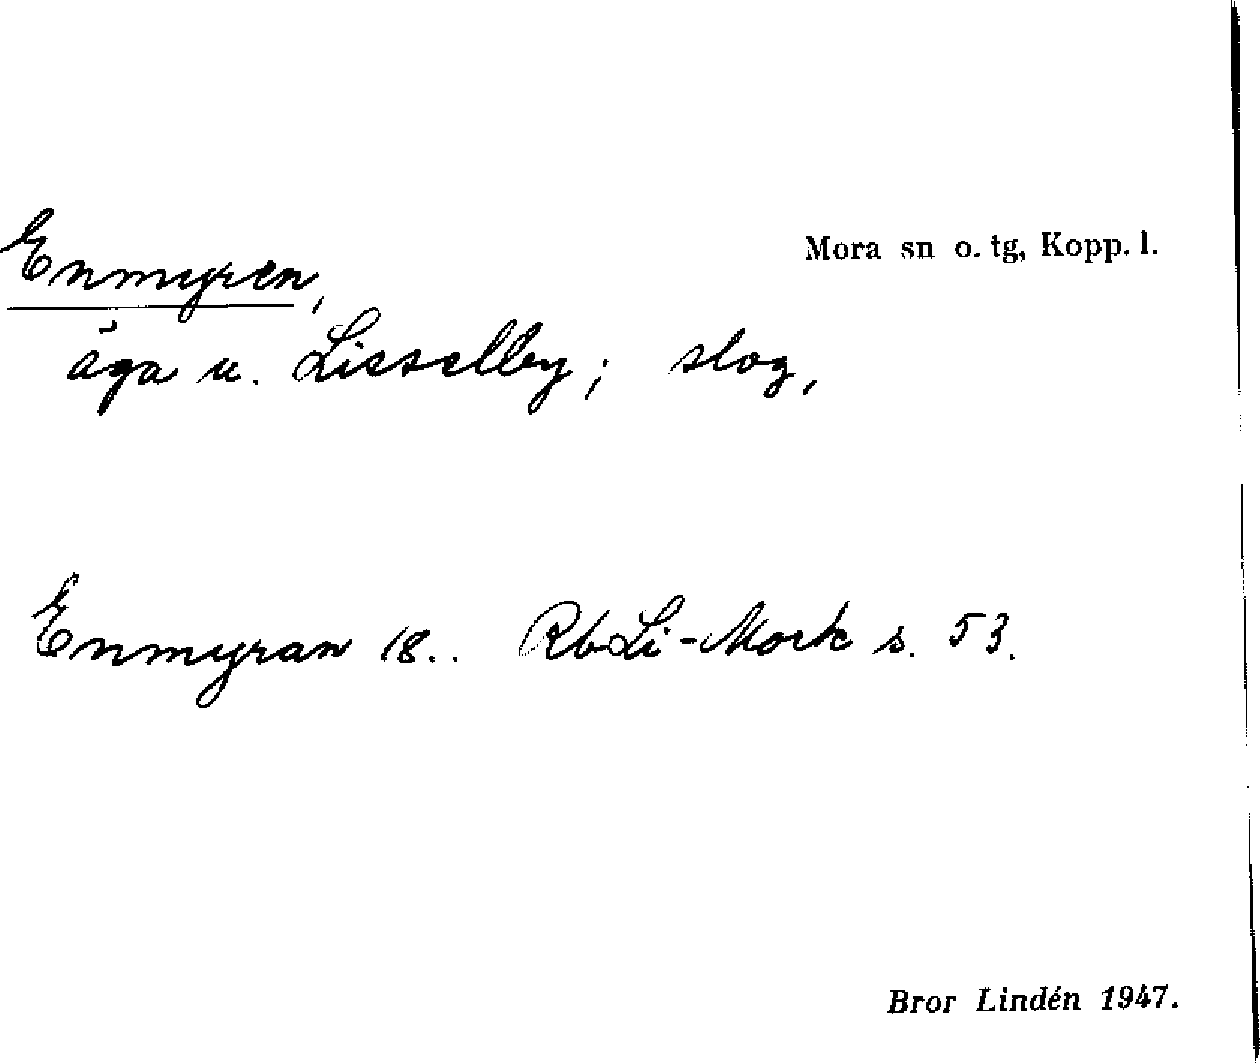 Mora sn o. tg, Kopp. l.
Enmyren,
äga u. Lisselby; slog,
Enmyran 18.. RbLi-Mork s. 53.
Bror Lindén 1947.